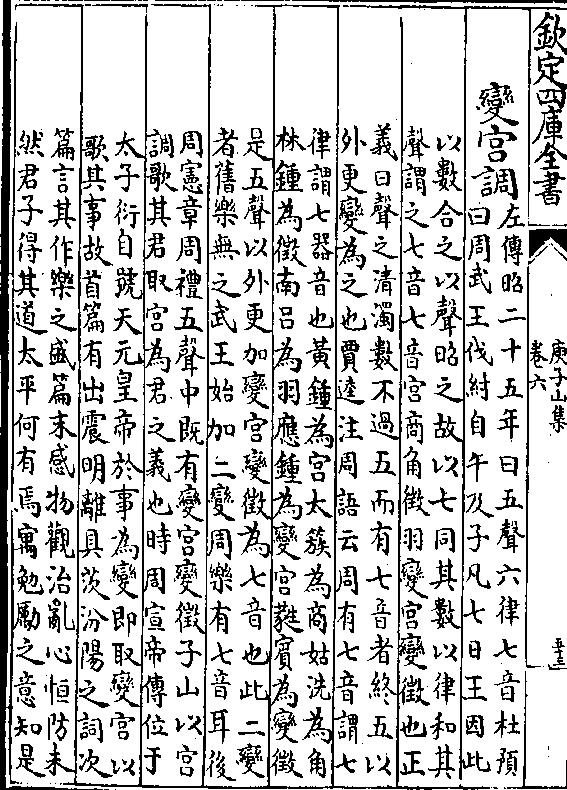 欽定四庫全書
庾子山集
卷六
變宮調
左傳昭二十五年曰五聲六律七音杜預
曰周武王伐紂自午及子凡七日王因此
以數合之以聲昭之故以七同其數以律和其
聲謂之七音七音宮商角徵羽變宮變徵也正
義曰聲之清濁數不過五而有七音者終五以
外更變為之也賈逵注周語云周有七音謂七
律謂七器音也黃鍾為宮太簇為商姑洗為角
林鍾為徵南呂為羽應鍾為變宮蕤賓為變徵
是五聲以外更加變宮變徵為七音也此二變
者舊樂無之武王始加二變周樂有七音耳後
周憲章周禮五聲中既有變宮變徵子山以宮
調歌其君取宮為君之義也時周宣帝傳位于
太子衍自號天元皇帝於事為變即取變宮以
歌其事故首篇有出震明離具茨汾陽之詞次
篇言其作樂之盛篇末感物觀治亂心恒防未
然君子得其道太平何有焉寓勉勵之意知是